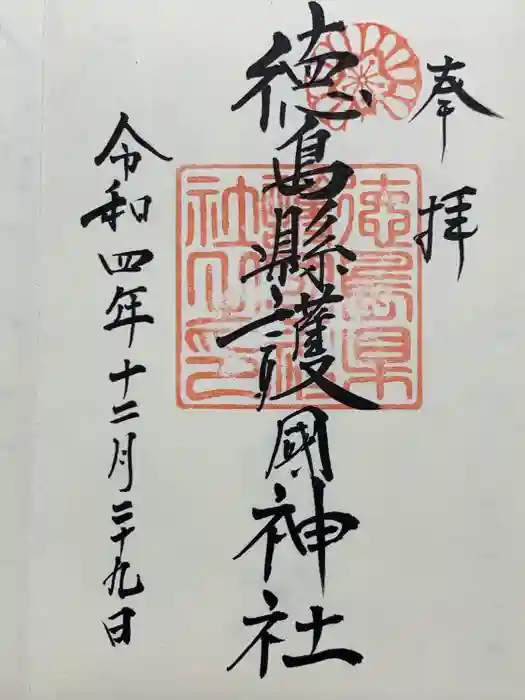 奉拝
徳島縣護國神社
徳島県護国神社之印
令和四年十二月二十九日